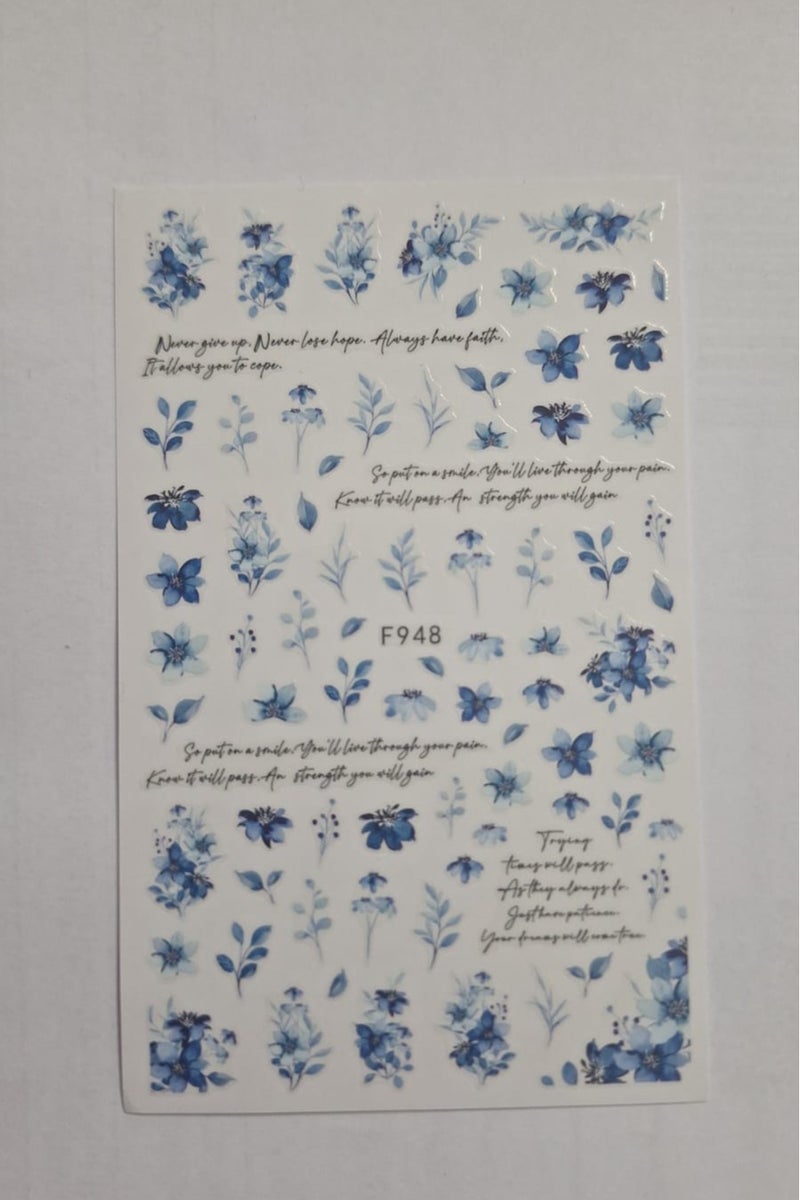 Never give up. Never lose hope. Always have faith,
It allows you to cope.
So put on a smile. You'll live through your pain.
Know it will pass. An strength you will gain
F948
So put on a smile. You'll live through your pain.
Know it will pass. An strength you will gain
Trying
times will pass.
As they always do.
Just have patience.
Your dreams will come true.